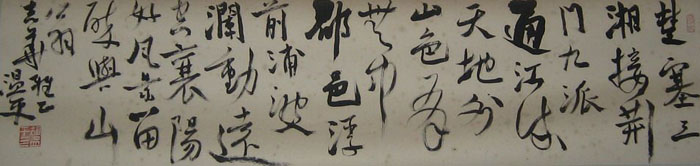 楚塞三
湘接荆
门九派
通江流
天地外
山色有
無中
郡邑浮
前浦波
瀾動遠
空襄陽
好风景留
醉與山
翁